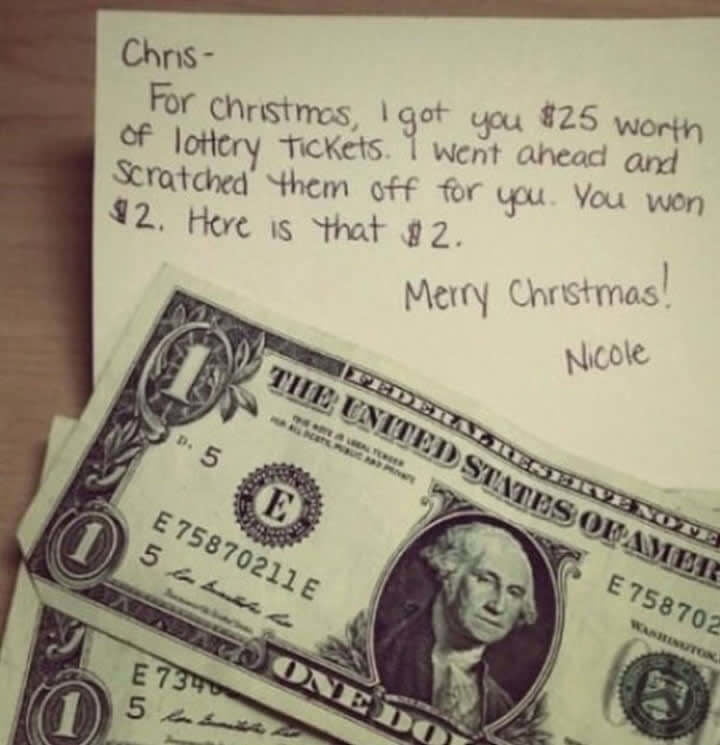 Chris-
For christmas, I got you $25 worth
of lottery tickets. I went ahead and
scratched them off for you. You won
$2. Here is that $2.
Merry Christmas!
Nicole
FEDERAL RESERVE NOTE
THE UNITED STATES OF AMER
THIS NOTE IS LEGAL TENDER
FOR ALL DEBTS, PUBLIC AND PRIVATE
1
D. 5
E
E 75870211 E
5
1
E 758702
WASHINGTON
ONE DOL
E 734
5
1